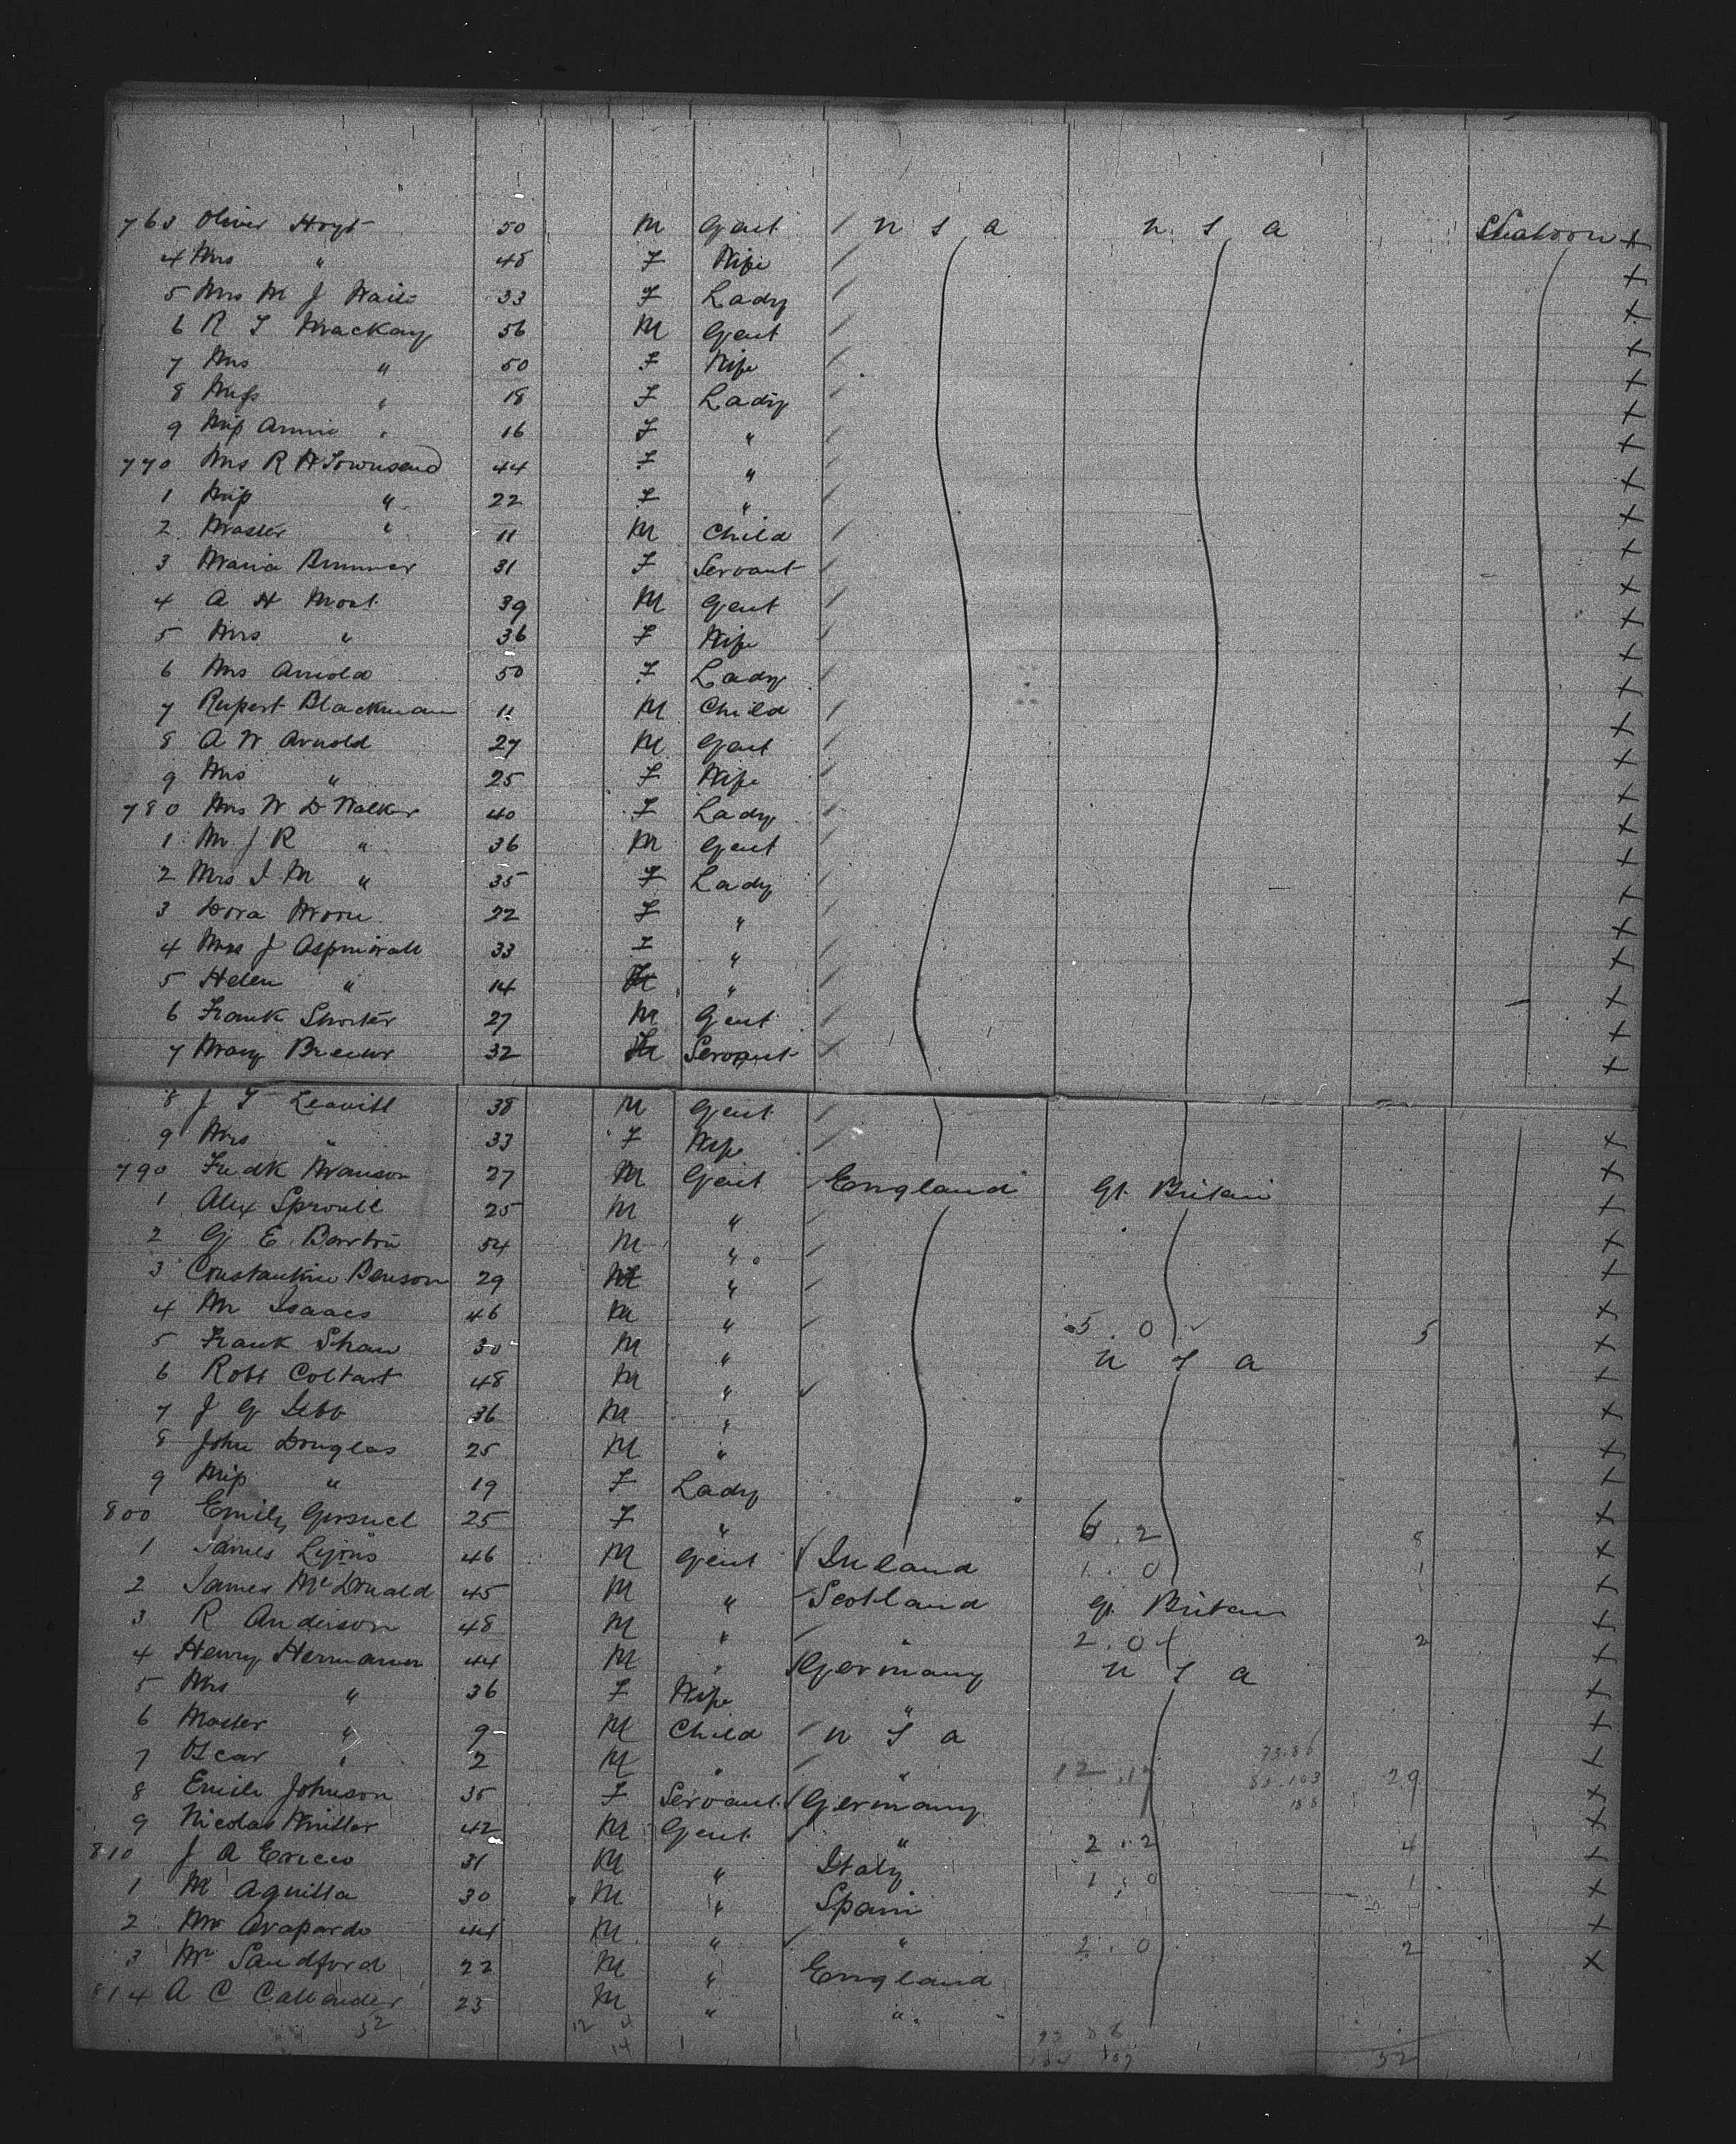 763 Oliver Hoyt 50 M Gent / U S A U S A Saloon X
4 Mrs " 48 F Wife / X
5 Mrs M J Wait 33 F Lady / X
6 R T Mackay 56 M Gent / X
7 Mrs " 50 F Wife / X
8 Miss " 18 F Lady / X
9 Miss Annie " 16 F " / X
770 Mrs R H Townsend 44 F " / X
1 Miss " 22 F " / X
2 Master " 11 M Child / X
3 Maria Brunner 31 F Servant / X
4 A H 39 M Gent / X
5 Mrs " 36 F Wife / X
6 Mrs Arnold 50 F Lady / X
7 Rupert Blackman 11 M Child / X
8 A W Arnold 27 M Gent / X
9 Mrs " 25 F Wife / X
780 Mrs W D Walker 40 F Lady / X
1 Mr J R " 36 M Gent / X
2 Mrs I M " 35 F Lady / X
3 Dora 22 F " / X
4 Mrs J Aspinwall 33 F " / X
5 Helen " 14 F " / X
6 Frank Shorter 27 M Gent / X
7 Mary 32 F Servant / X
8 J T Leavitt 38 M Gent /
9 Mrs " 33 F Wife / X
790 Fredk Manson 27 M Gent England Gt. Britain X
1 Alex Sproull 25 M " / X
2 G E Barton 54 M " / X
3 Constantine Benson 29 M " / X
4 Mr Isaacs 46 M " / 5 . 0 5 X
5 Frank Shaw 30 M " U S A X
6 Robt Coltart 48 M " X
7 J G 36 M " X
8 John Douglas 25 M " X
9 Miss " 19 F Lady X
800 Emily 25 F " 6 . 2 8 X
1 James Lyons 46 M Gent / Ireland 1 . 0 1 X
2 James McDonald 45 M " / Scotland Gt. Britain X
3 R Anderson 48 M " / " 2 . 0 2 X
4 Henry Hermann 44 M " / Germany U S A X
5 Mrs " 36 F Wife " X
6 Master " 9 M Child / U S A X
7 Oscar " 2 M " / " 12 . 17 29 X
8 Emile Johnson 35 F Servant / Germany X
9 Nicolas Miller 42 M Gent " 2 . 2 4 X
810 J A 31 M " Italy 1 . 0 1 X
1 M Aquilla 30 M " Spain X
2 Mr 44 M " " 2 . 0 2 X
3 Mr Sandford 22 M " England X
814 A C Callander 23 M " "
52 12 14 52